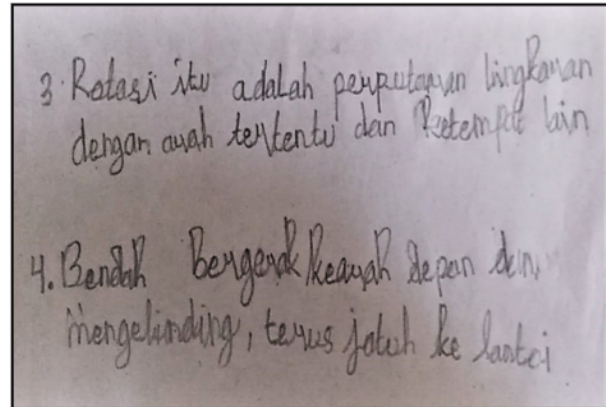 3. Rotasi itu adalah perputaran lingkaran
dengan arah tertentu dan ketempat lain
4. Bendah Bergerak kearah depan dan
mengelinding, terus jatuh ke lantai